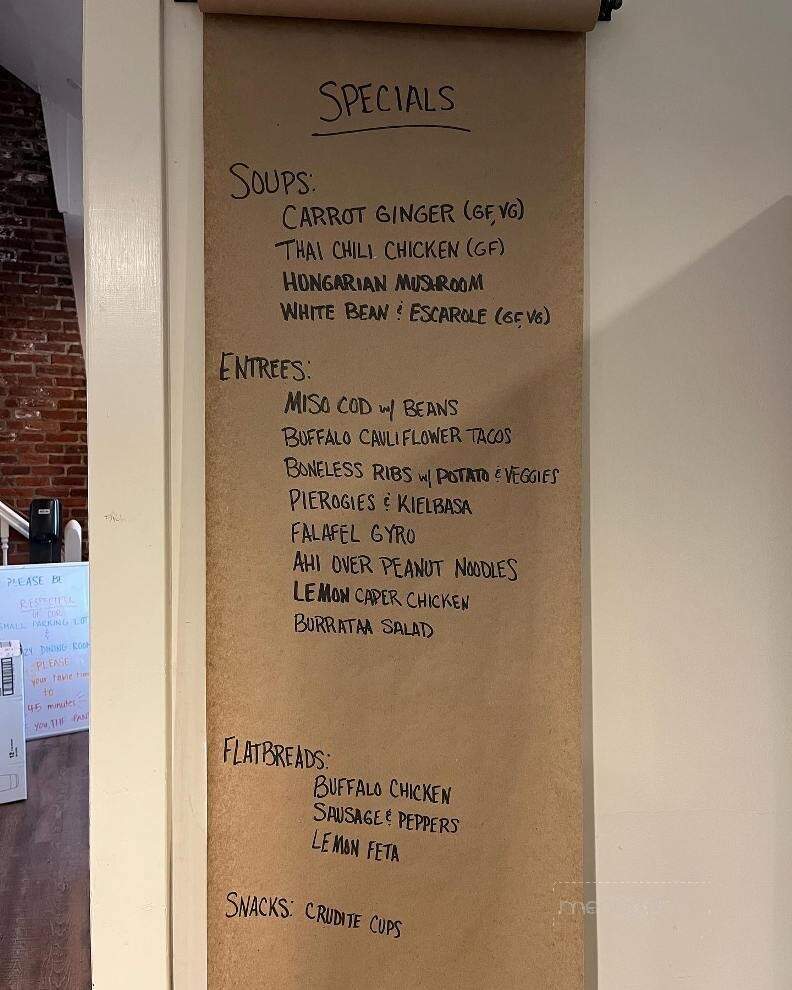 SPECIALS
SOUPS:
CARROT GINGER (GF, VG)
THAI CHILI CHICKEN (GF)
HUNGARIAN MUSHROOM
WHITE BEAN & ESCAROLE (GF, VG)
ENTREES:
MISO COD w/ BEANS
BUFFALO CAULIFLOWER TACOS
BONELESS RIBS w/ POTATO & VEGGIES
PIEROGIES & KIELBASA
FALAFEL GYRO
AHI OVER PEANUT NOODLES
LEMON CAPER CHICKEN
BURRATAA SALAD
FLATBREADS:
BUFFALO CHICKEN
SAUSAGE & PEPPERS
LEMON FETA
SNACKS: CRUDITE CUPS
PLEASE BE
RESPECTFUL
OF OUR
SMALL PARKING LOT
&
DINING ROOM
PLEASE
your table time
to
45 minutes
YOU, THE